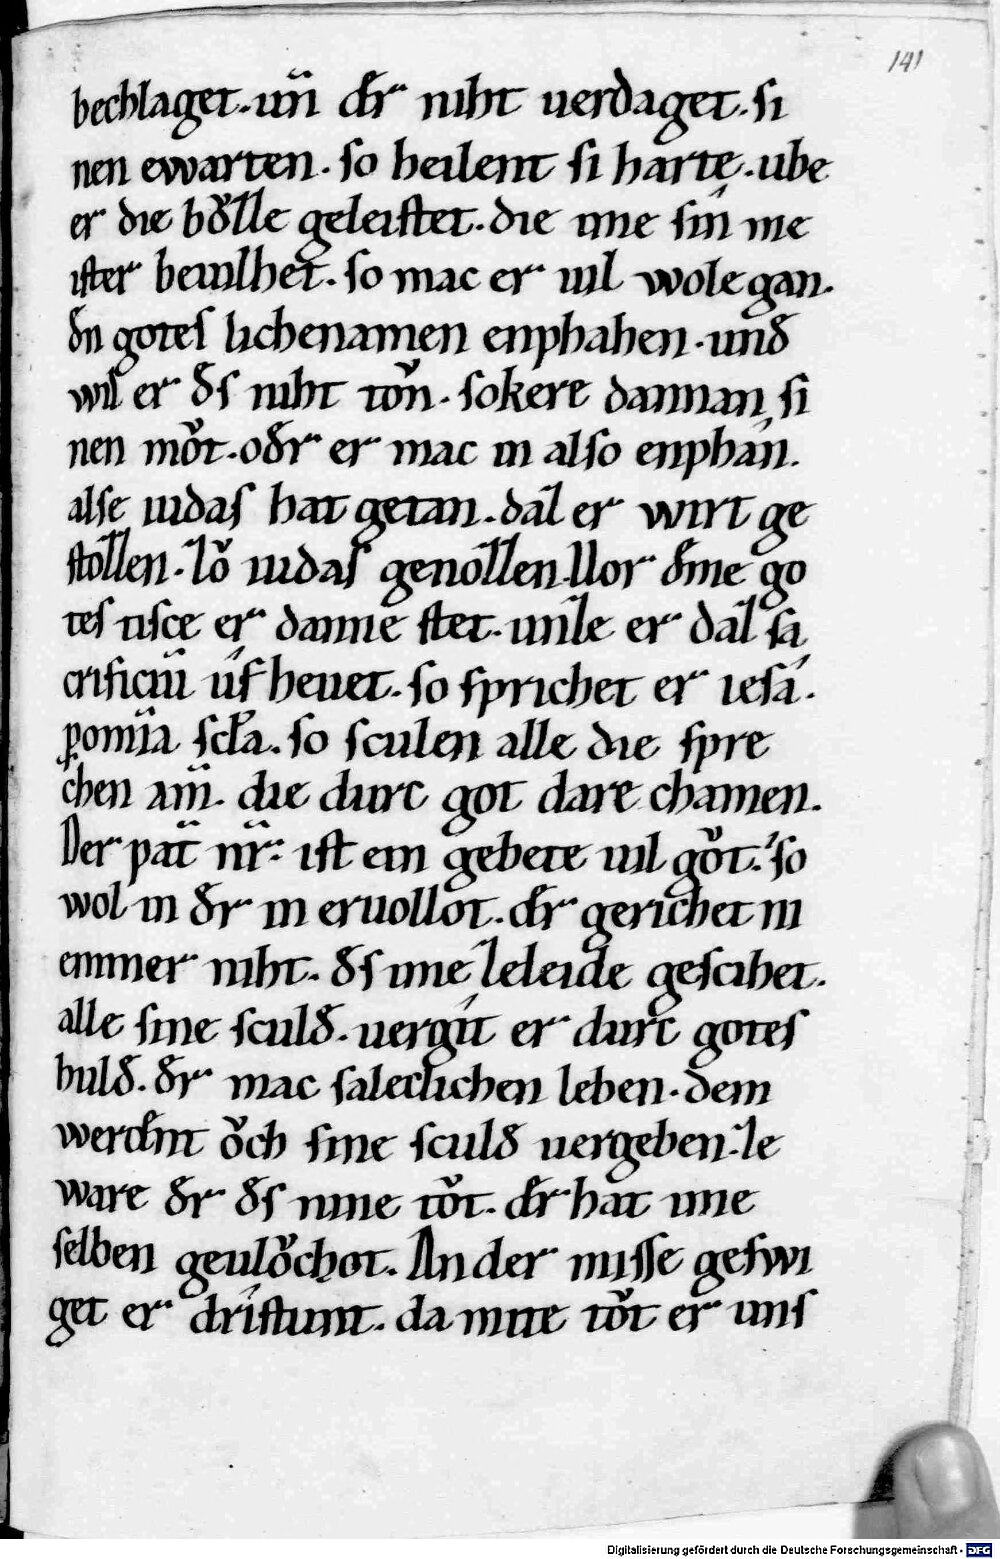 141
bechlaget. un̄ dēr niht uerdaget. si
nen ewarten. so heilent si harte. ube
er die bǒzze geleistet. die ime sín me
ister beuilhet. so mac er uil wole gan.
đn gotes lichenamen enphahen. unđ
wil er đs niht tǒn. sokere dannan si
nen mǒt. ođr er mac in also enphán.
alse iudas hat getan. daz er wirt ge
stozzen. zǒ iudas genozzen. Uor đme go
tes tisce er danne stet. unze er daz sa
crificiū úf heuet. so sprichet er iesá.
ꝑ omīa scl̄a. so sculen alle die spre
chen am̄. die durc got dare chamen.
Der pat̄ nr̄. ist ein gebete uil gǒt. so
wol in đr in eruollot. đr gerichet in
emmer niht. đs ime ze leide gescihet.
alle sine sculđ. uergít er durc gotes
hulđ. đr mac saleclichen leben. dem
werđnt ǒch sine sculđ uergeben. ze
ware đr đs nine tǒt. đr hat ime
selben geulǒchot. An der misse geswi
get er dristunt. da mite tǒt er uns
Digitalisierung gefördert durch die Deutsche Forschungsgemeinschaft - DFG